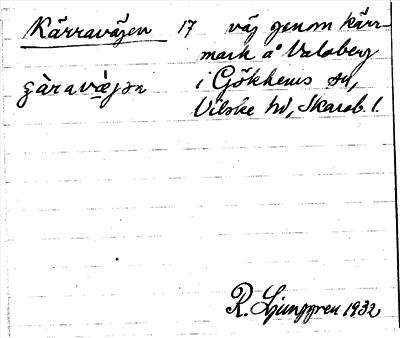 Kärravägen 17 väg genom kärr-
mark å Valaberg
gàravæ̀jən i Gökhems sn,
Vilske hd, Skarab. l.
R. Ljunggren 1932